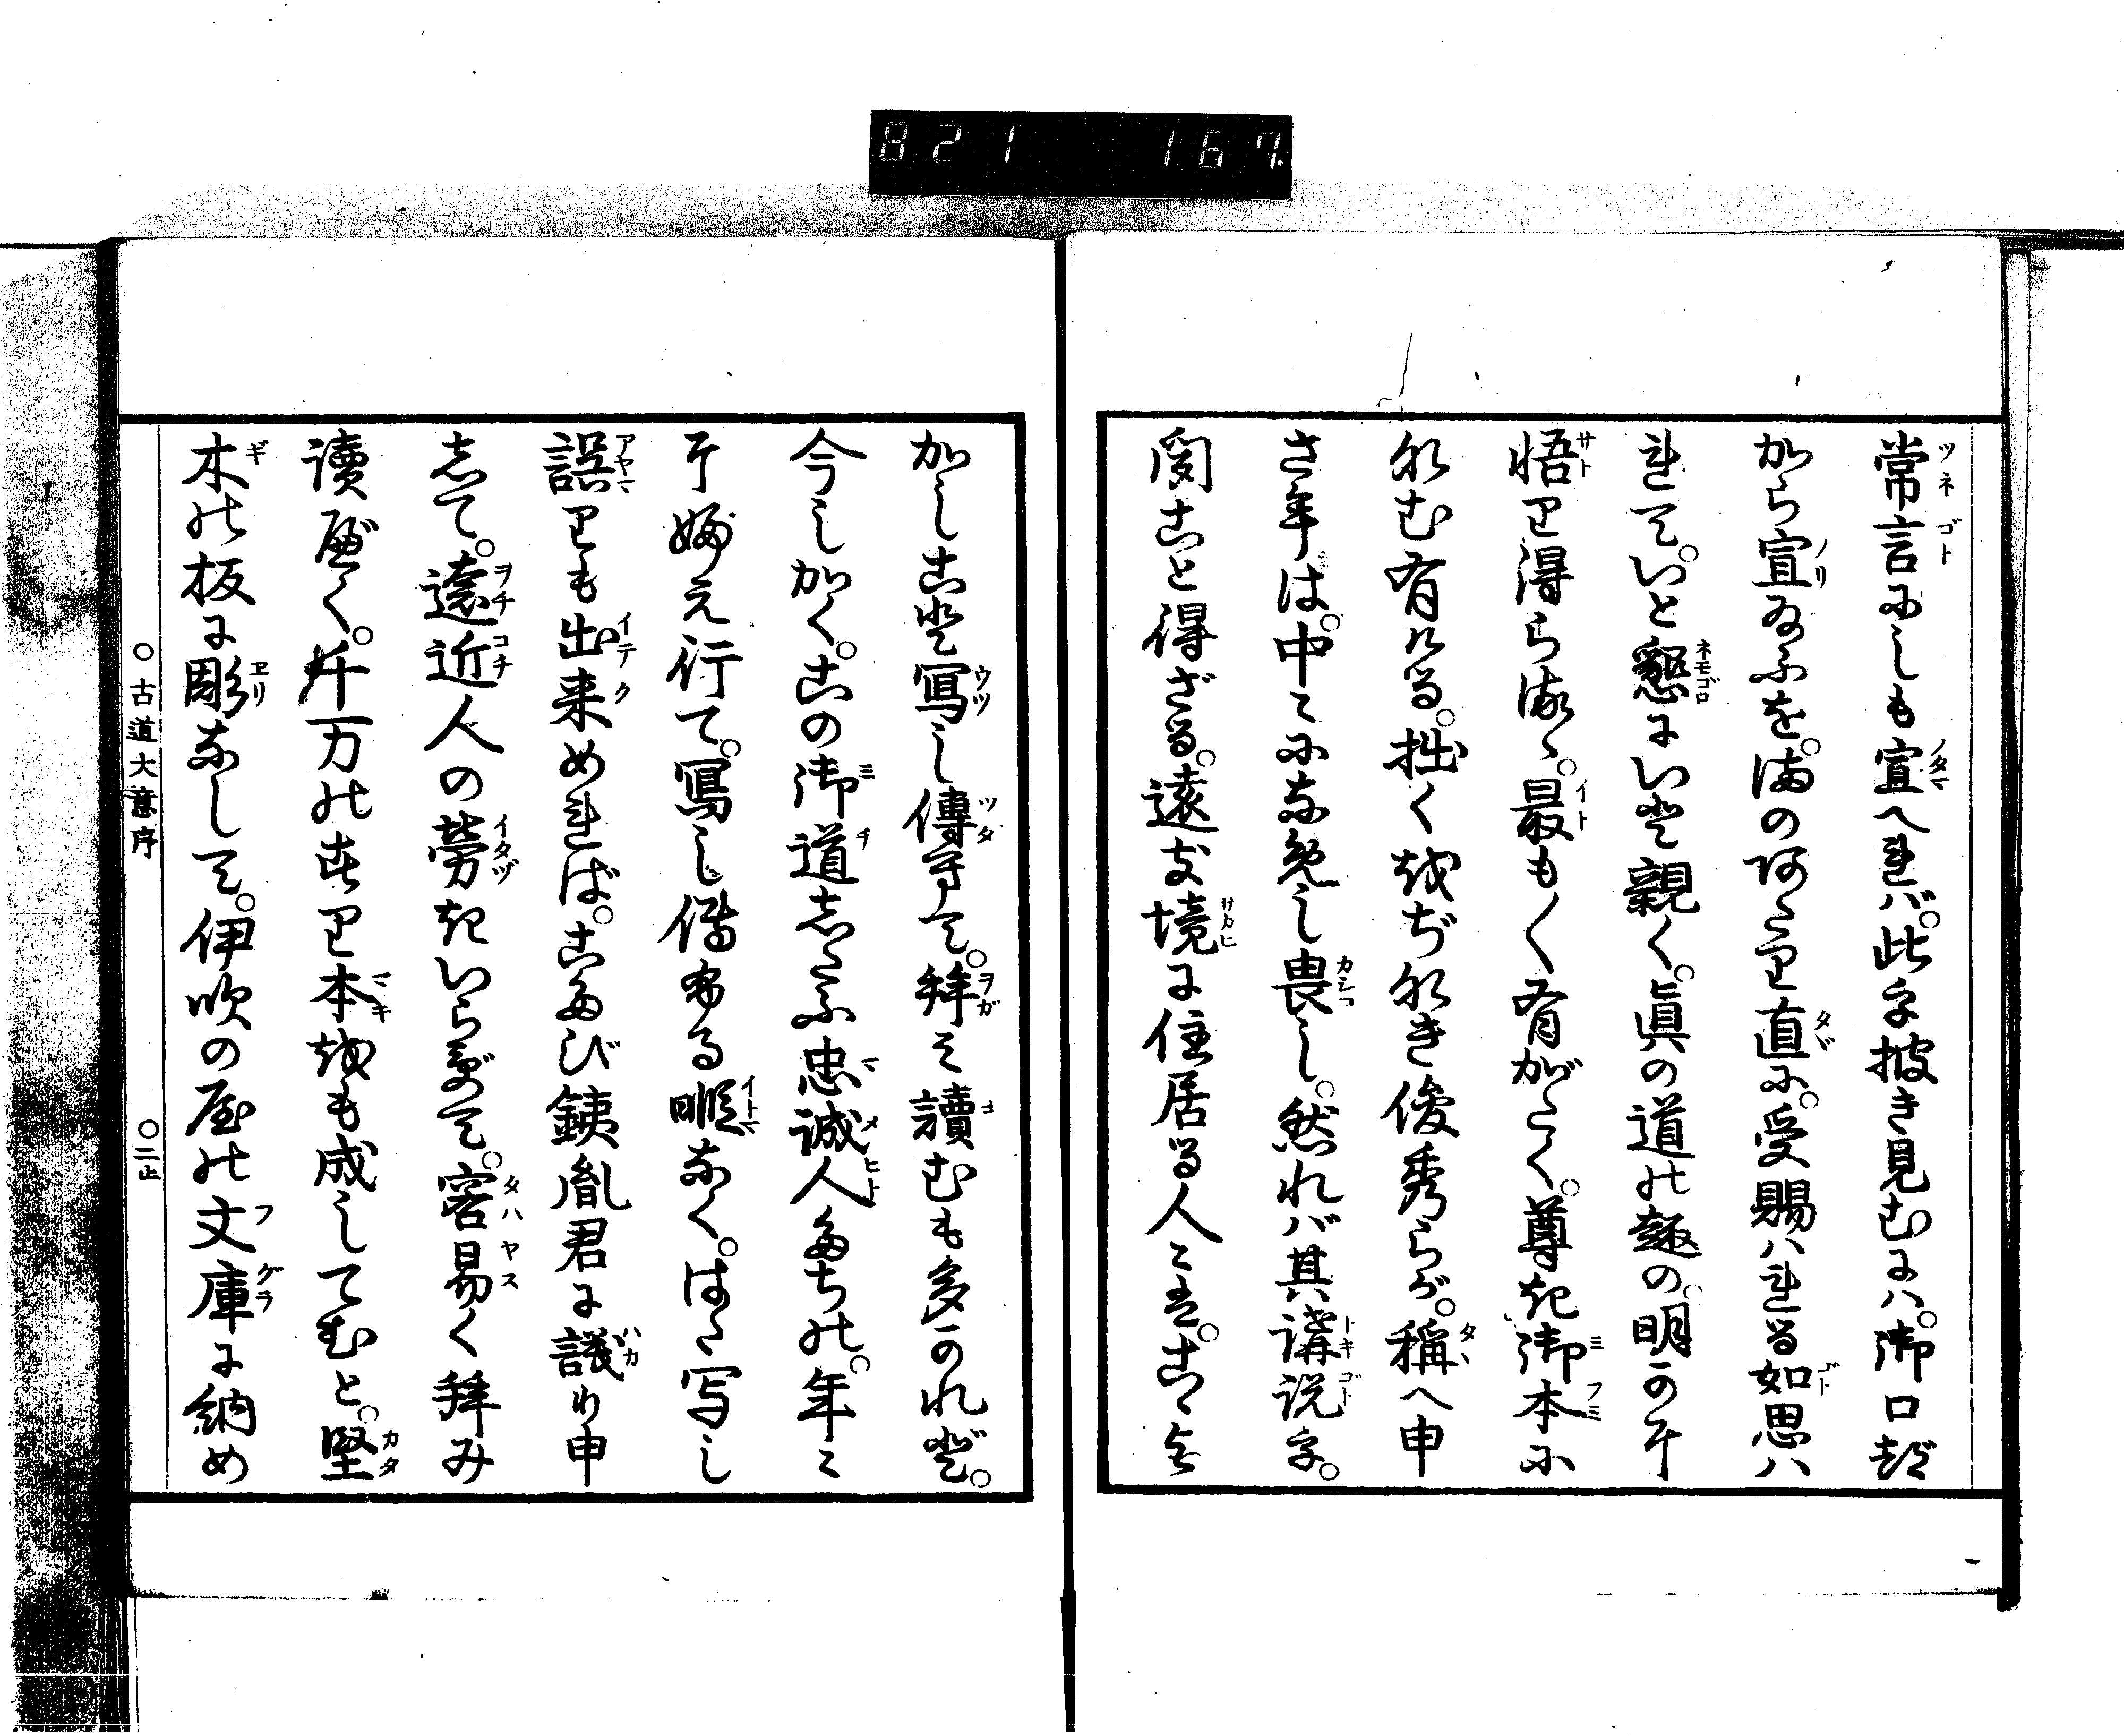 821 167.
常言にしも宣へれバ。此を披き見むにハ。御口づ
から宣給ふを。まのあたり直に。受賜ハれる如思ハ
れて。いと懇にいと親く。眞の道の趣の。明かに
悟り得らるゝ。最もく有がたく。尊き御本に
なむ有ける。拙くをぢなき俊秀らが。稱へ申
さむは。中々になめし畏し。然れバ其講説を。
聞こと得ざる。遠き境に住居る人々は。こを
かしこと寫し傳すて。拜み讀むも多かれど。
今しかく。この御道したふ忠誠人たちの。年々
に
弥え行て。寫し備ふる暇なく。はた写し
誤りも出来めれば。こたび銕胤君に議り申
して。遠近人の勞きいらずて。容易く拜み
讀べく。千万の青り本をも成してむと。堅
木の板に彫なして。伊吹の屋の文庫に納め
○古道大意序
○二止